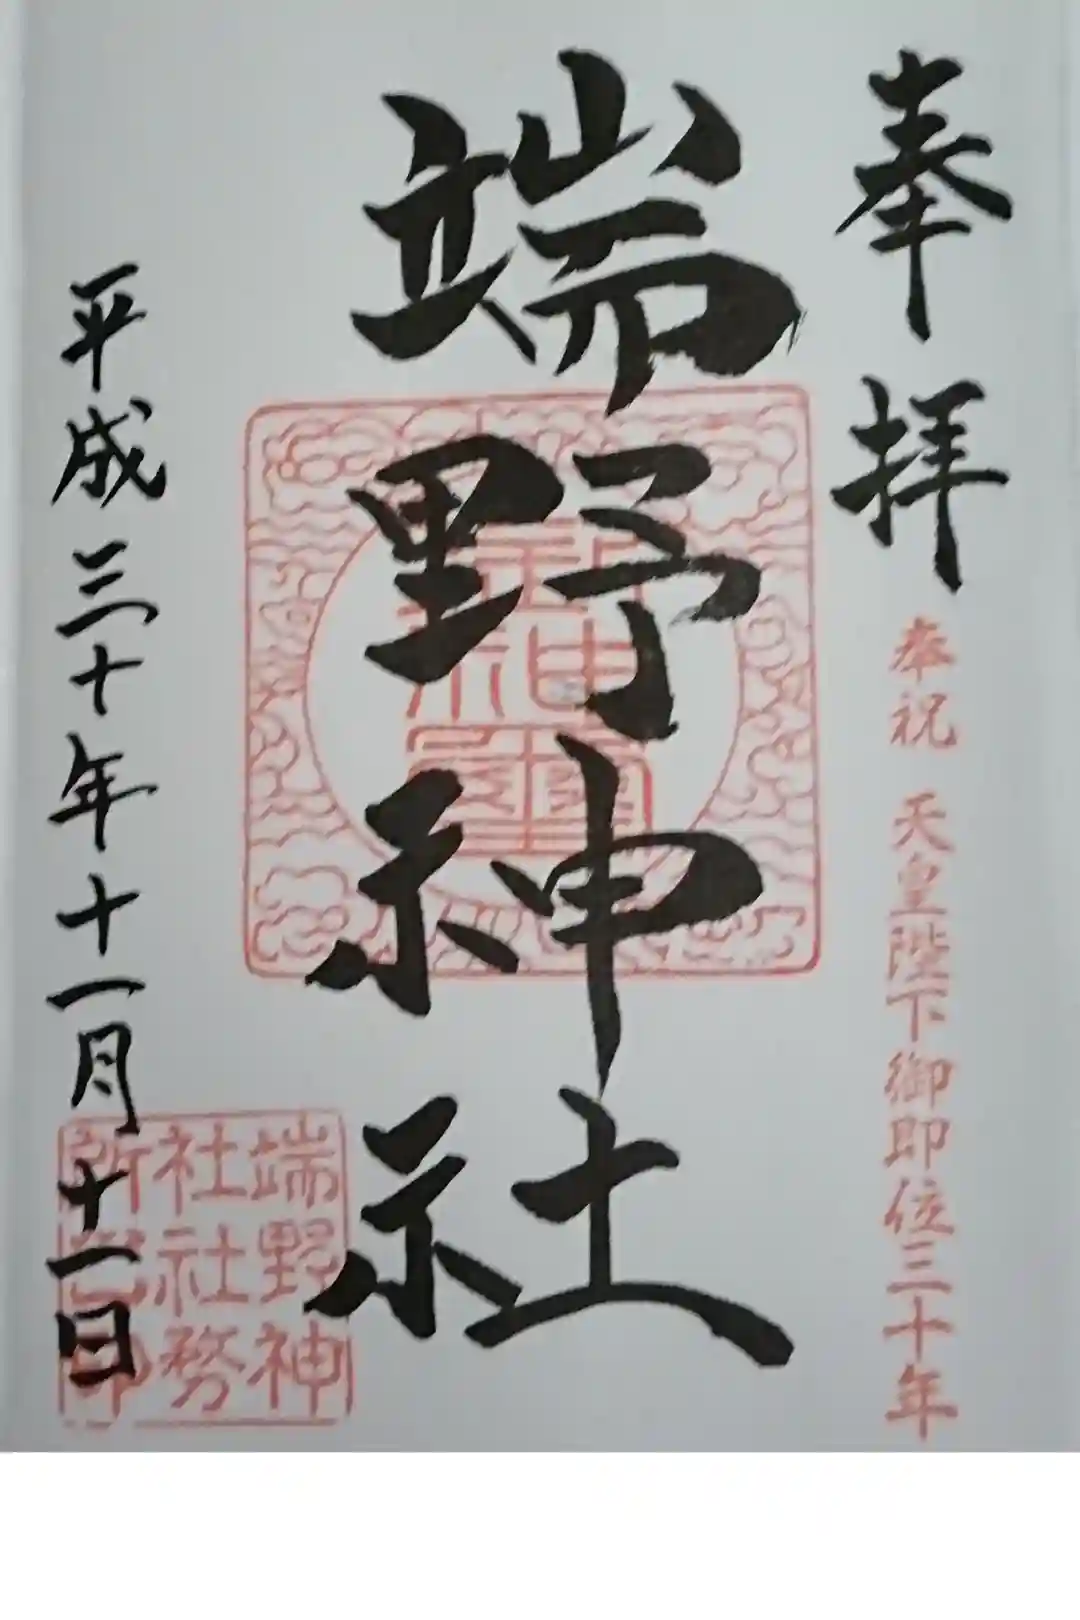 奉拝
奉祝 天皇陛下御即位三十年
端野神社
平成三十年十一月十一日
端野神
社社務